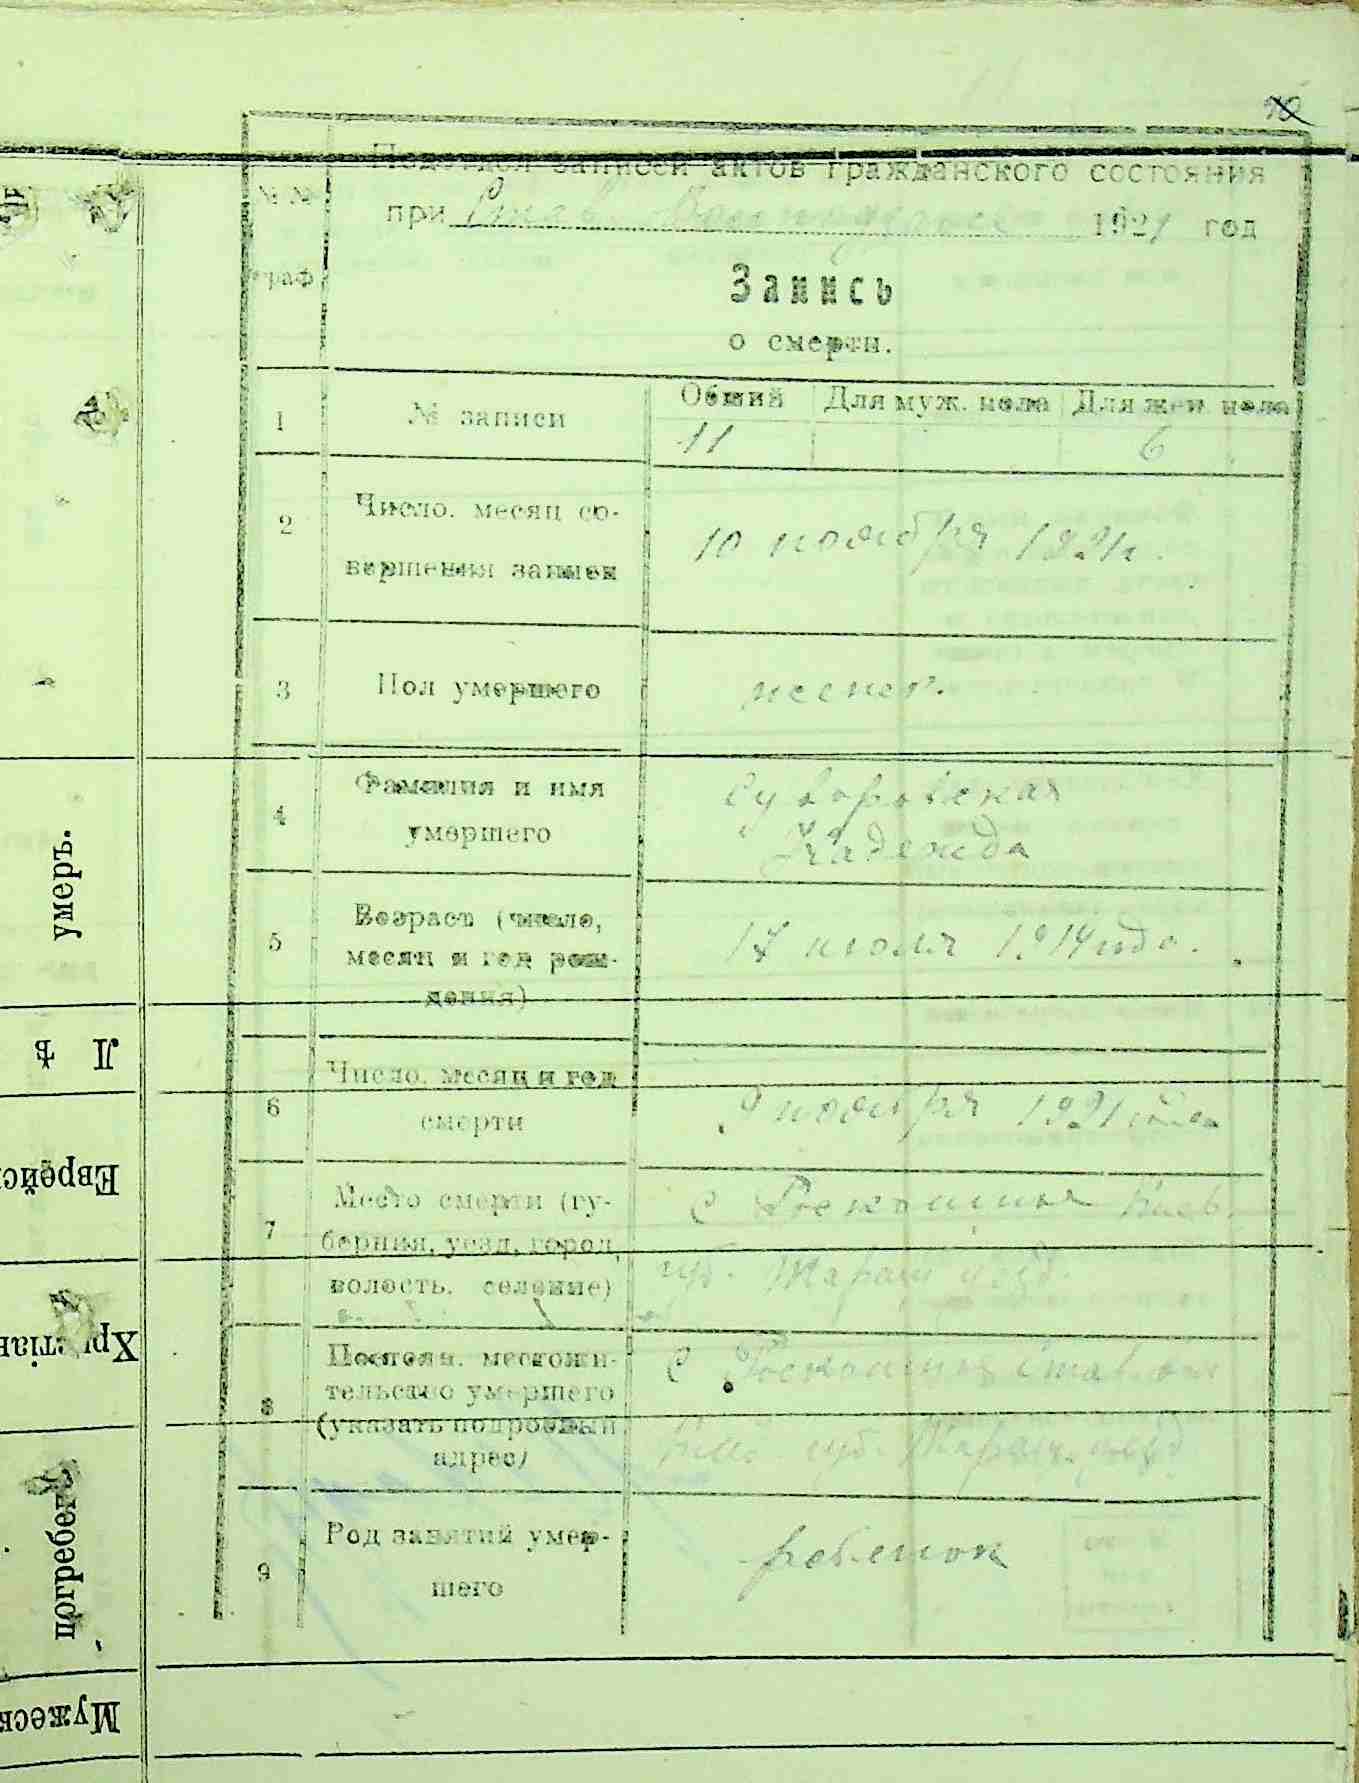 Подотдел записей актов гражданского состояния
№ №
при Став. 1921 год
граф
Запись
о смерти.
Общий Для муж. пола Для жен. пола
1 № записи
11 6
2 Число, месяц со-
вершения записи
10 ноября 1921 г.
3 Пол умершего женск.
4 Фамилия и имя
умершего
Суворовская
Надежда
5 Возраст (число,
месяц и год рож-
дения)
17 июля 1914 года.
6 Число, месяц и год
смерти
9 ноября 1921 года
7 Место смерти (гу-
берния, уезд, город,
волость, селение)
с Роскошная Киев.
губ. Таращ. уезд.
8 Постоян. местожи-
тельство умершего
(указать подробный
адрес)
с Роскошная Став.
губ. Таращ. уезд
9 Род занятий умер-
шего
ребенок
умеръ.
Л ѣ
Еврейск
Христіан
погребенъ
Мужеск